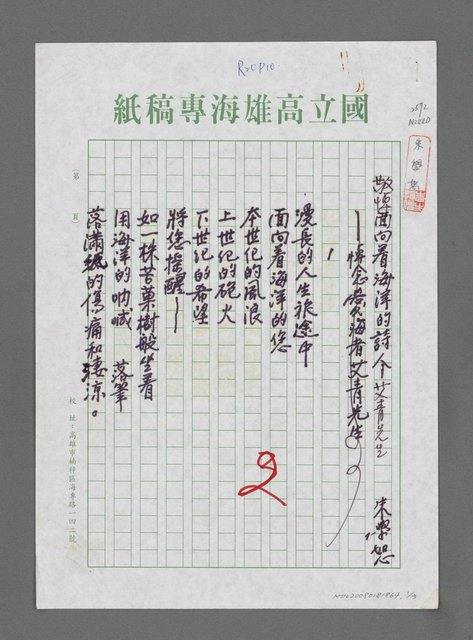 R20P10
2592
N2220
紙稿專海雄高立國
朱學恕
敬悼面向着海洋的詩人艾青先生
朱學恕
—悼念 海者艾青先生
1
漫長的人生旅途中
面向着海洋的您
本世紀的風浪
上世紀的砲火
下世紀的希望
將您搖醒—
如一株苦菓樹般坐着
用海洋的吶喊 落筆
落滿紙的傷痛和淒涼。
2
(第 頁)
校址:高雄市楠梓區海專路一四二號
NMTL20080181864, 1/3